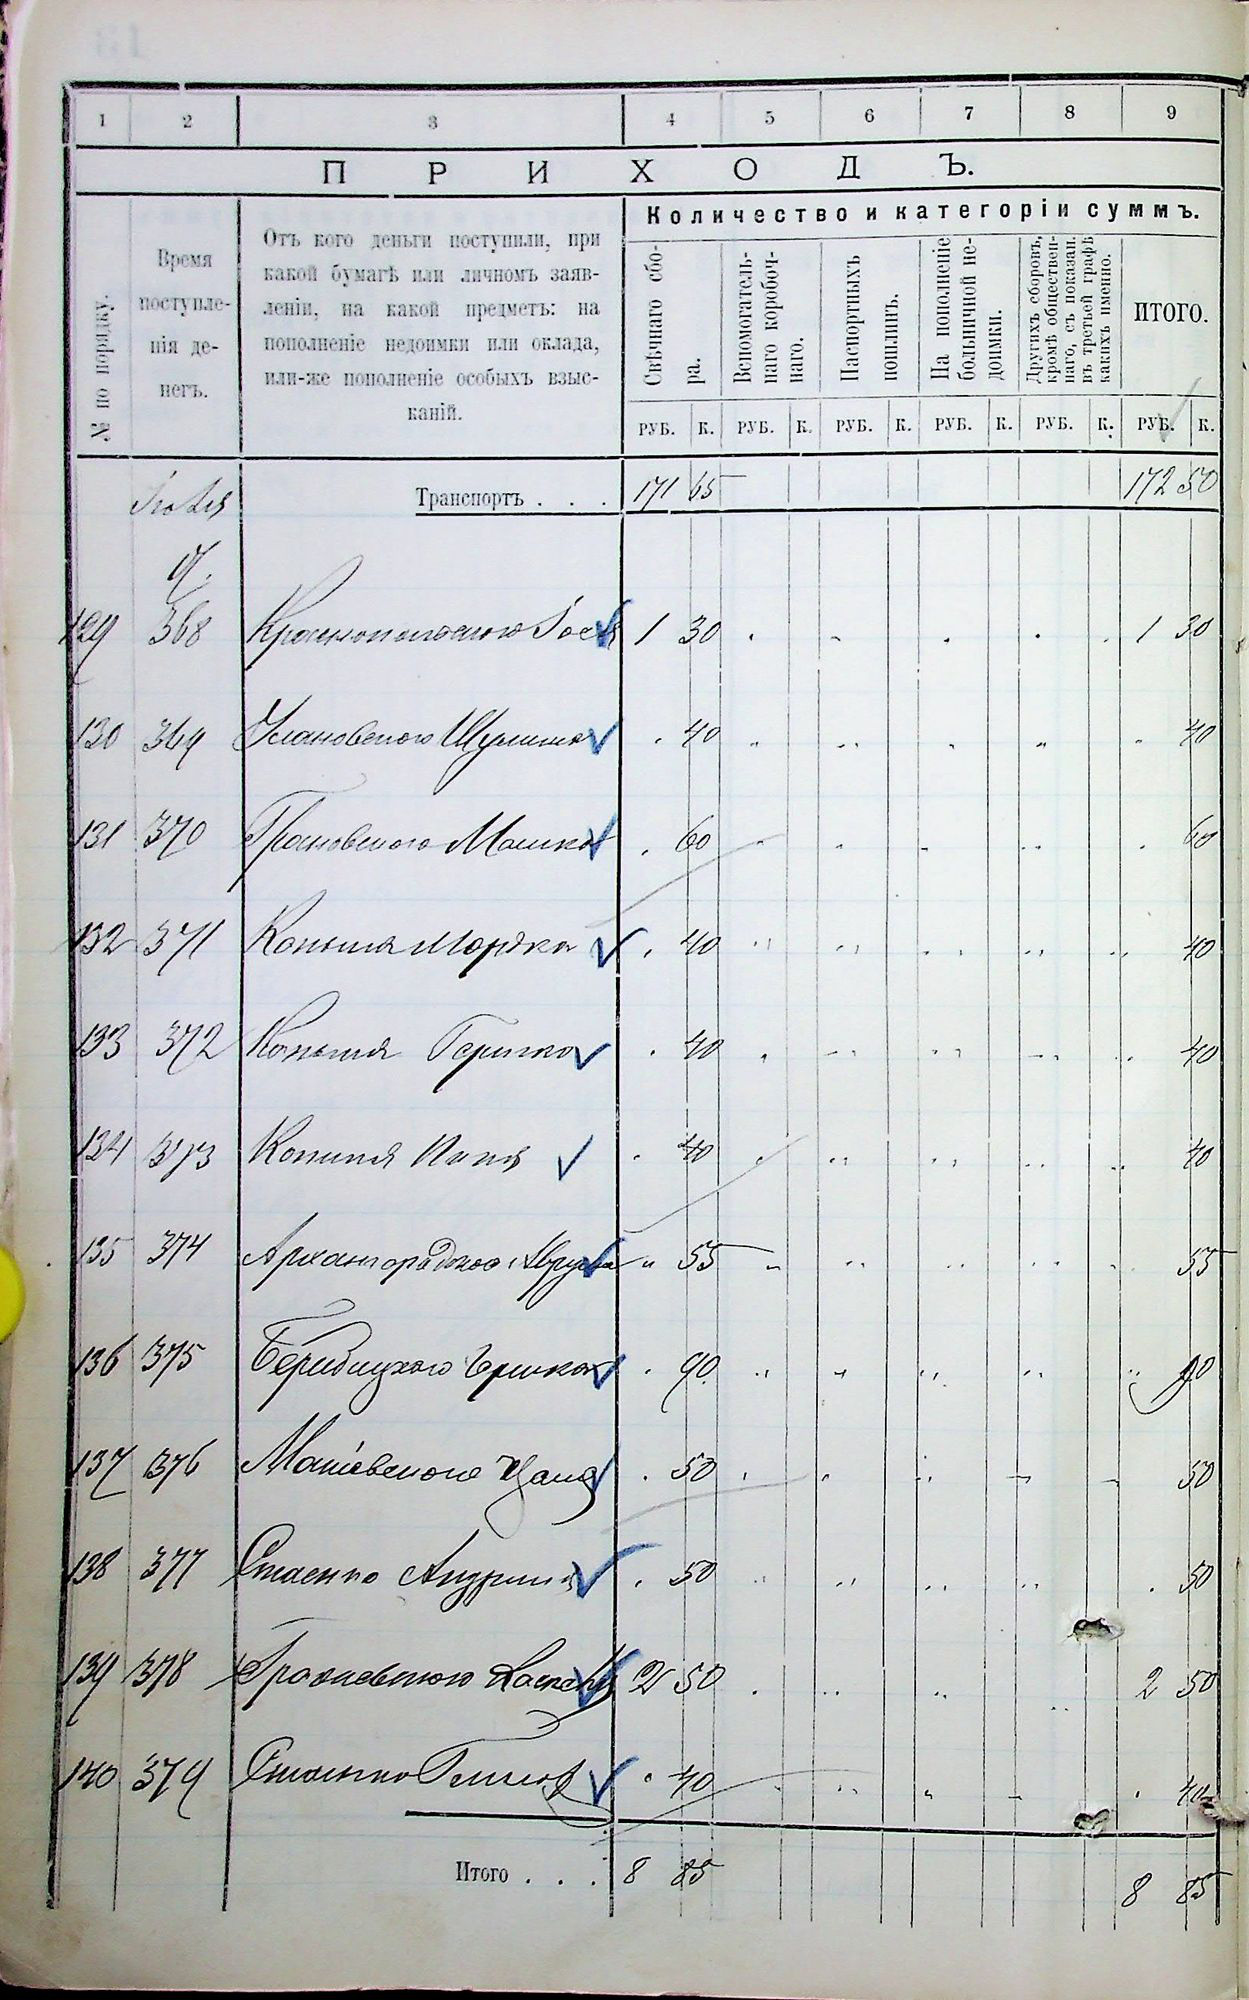 1 2 3 4 5 6 7 8 9
ПРИХОДЪ.
№ по порядку.
Время
поступле-
нія де-
негъ.
Отъ кого деньги поступили, при
какой бумагѣ или личномъ заяв-
леніи, на какой предметъ: на
пополненіе недоимки или оклада,
или-же пополненіе особыхъ взыс-
каній.
Количество и категоріи суммъ.
Свѣчнаго сбо-
ра.
Вспомогатель-
наго коробоч-
наго.
Паспортныхъ
пошлинъ.
На пополненіе
больничной не-
доимки.
Другихъ сборовъ,
кромѣ обществен-
наго, съ показан.
въ третьей графѣ
какихъ именно.
ИТОГО.
РУБ. К. РУБ. К. РУБ. К. РУБ. К. РУБ. К. РУБ. К.
Іюля Транспортъ . . . 171 65 172 50
9.
129 368 Краснопольского 1 30 1 30
130 369 40 40
131 370 Грановского Мошко 60 60
132 371 Копыля Мордко 40 40
133 372 Копыля Гершко 40 40
134 373 Копыля 40 40
135 374 Архангородского 55 55
136 375 90 90
137 376 50 50
138 377 Стаенко 50 50
139 378 2 50 2 50
140 379 40 40
Итого . . . 8 85 8 85